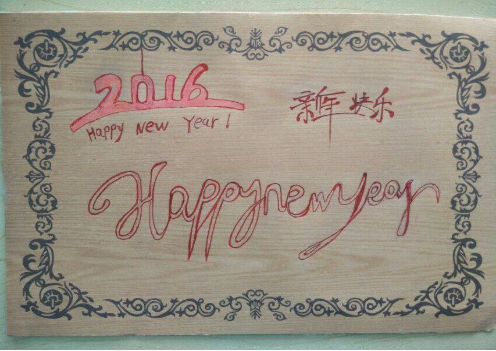 2016
Happy New Year!
新年快乐
Happynewyear